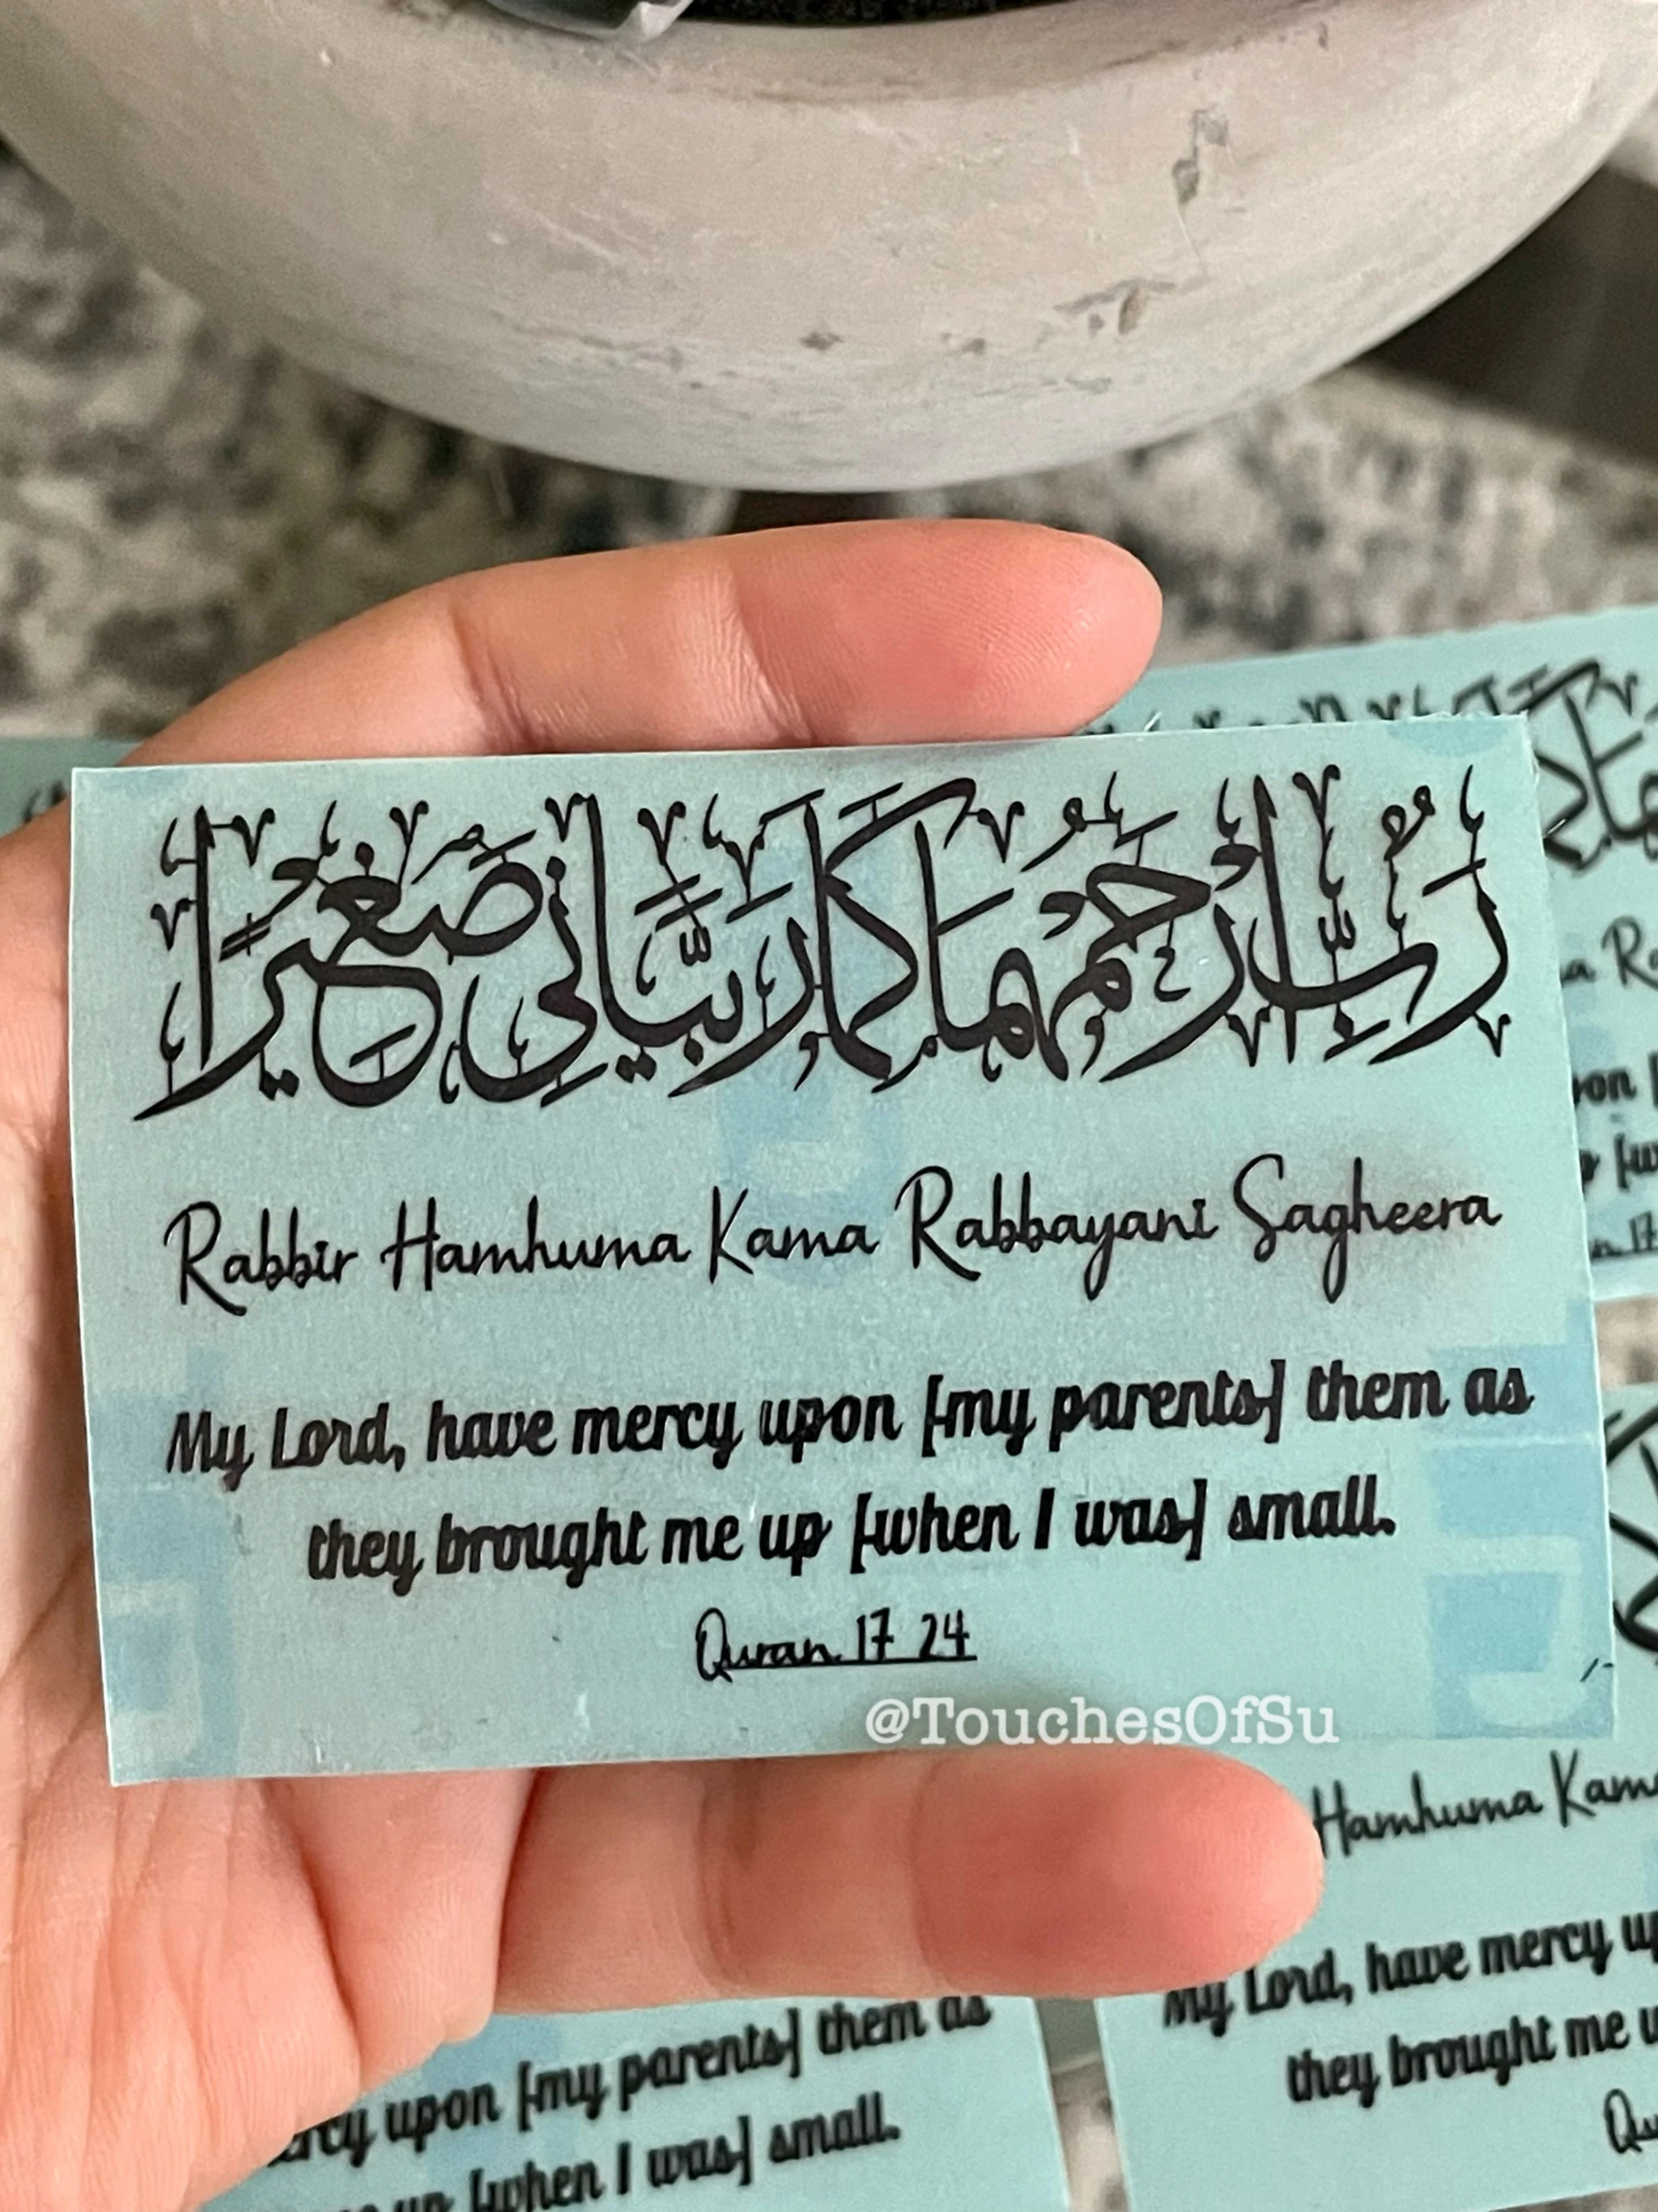 رَبِّ ارْحَمْهُمَا كَمَا رَبَّيَانِي صَغِيرًا
Rabbir Hamhuma Kama Rabbayani Sagheera
My Lord, have mercy upon [my parents] them as
they brought me up [when I was] small.
Quran 17 24
@TouchesOfSu
Hamhuma Kama
My Lord, have mercy
they brought me
upon [my parents] them as
[when I was] small.